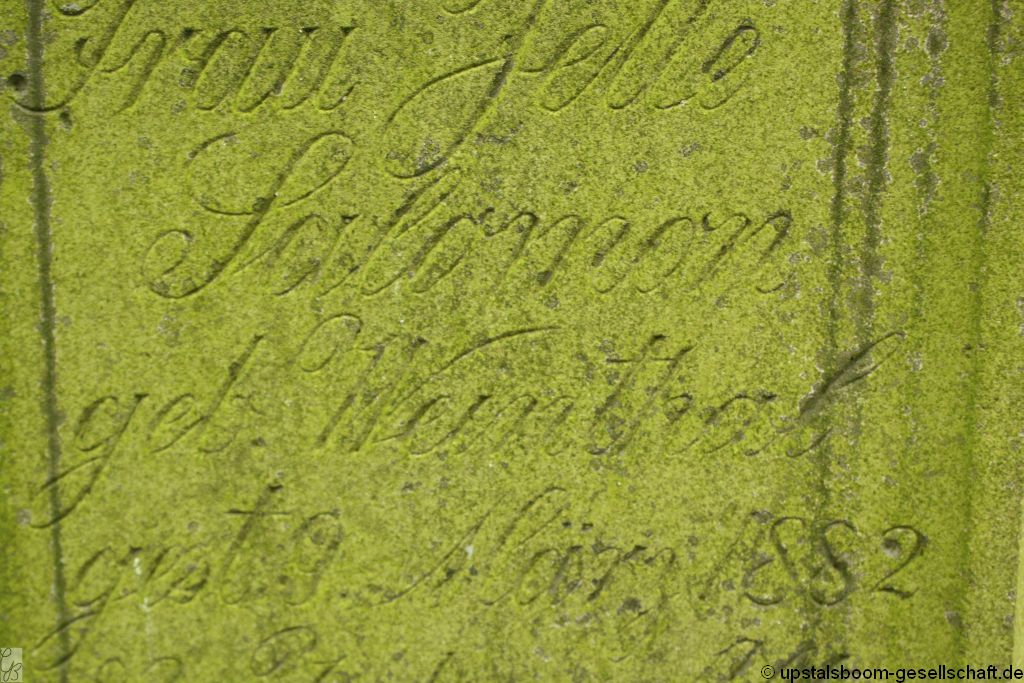 Frau Jette
Salomon
geb. Weinthal
gest 9 März 1882
© upstalsboom-gesellschaft.de